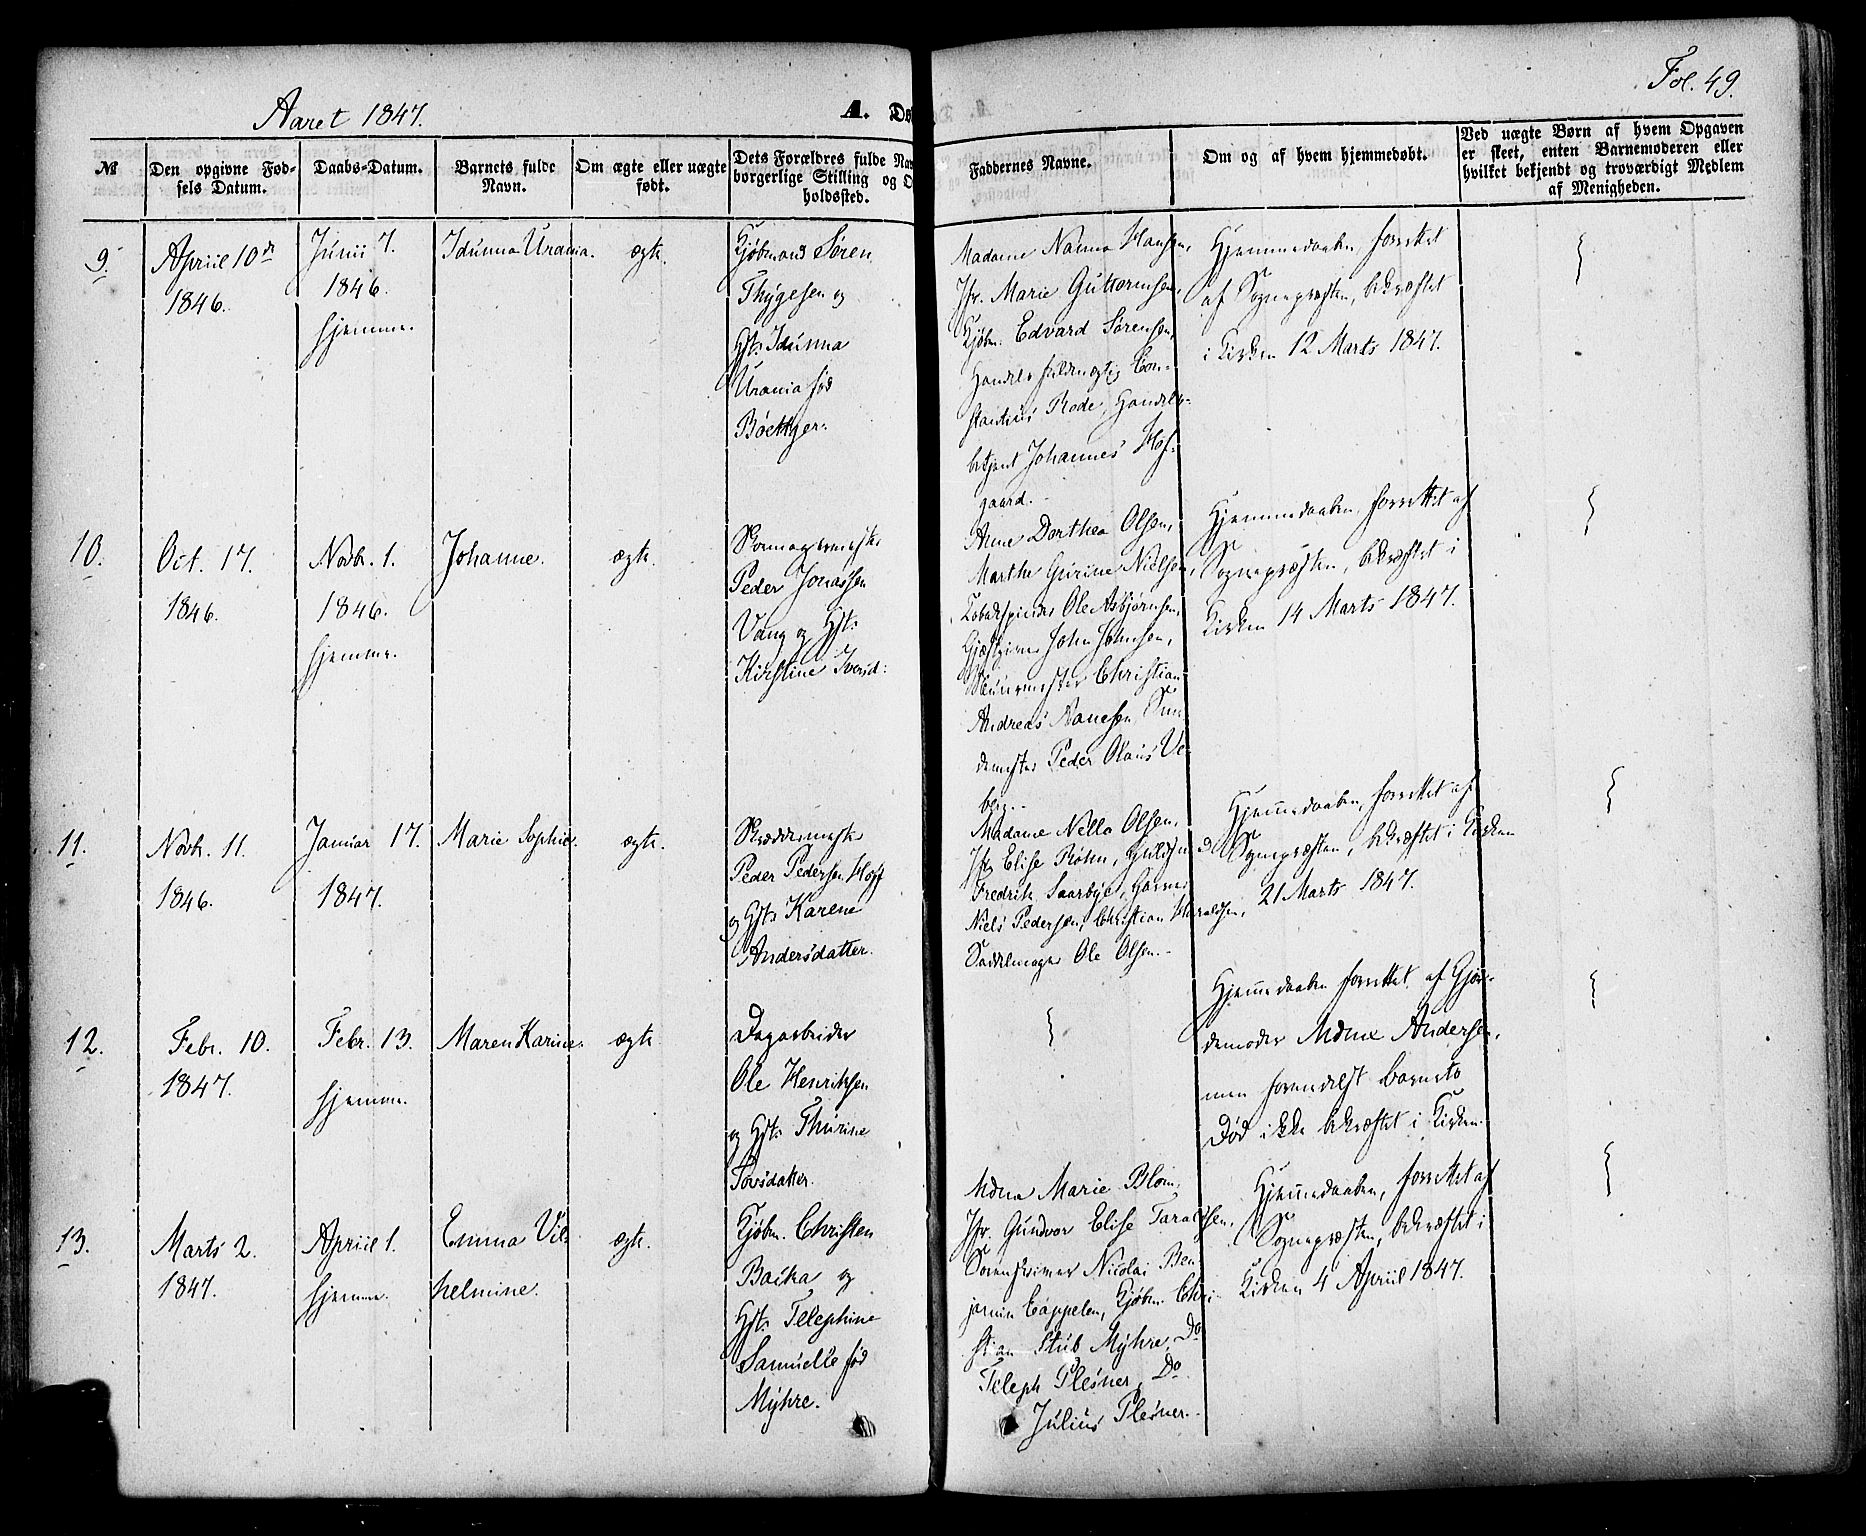 Fol. 49.
Aaret 1847.
A. Døb
№
Den opgivne Fød-
sels Datum.
Daabs-Datum.
Barnets fulde
Navn.
Om ægte eller uægte
født.
Dets Forældres fulde Nav
borgerlige Stilling og O
holdssted.
Faddernes Navne.
Om og af hvem hjemmedøbt.
Ved uægte Børn af hvem Opgaven
er skeet, enten Barnemoderen eller
hvilket bekjendt og troværdigt Medlem
af Menigheden.
9.
Apriil 10de
1846.
Junii 7.
1846.
hjemme.
Idunna Urania.
ægte.
Kjøbmand Søren
Thygesen og
Hst: Idunna
Urania fød
Bøettger.
Madame Nanna Hansen,
Jfr. Marie Guttormsen,
Kjøbm. Edvard Sørensen,
Handelsfuldmægtig Con-
stantius Rode, Handels-
betjent Johannes Hof-
gaard.
Hjemmedaaben forrettet
af Sognepræsten, bekræftet
i Kirken 12 Marts 1847.
10.
Oct. 17.
1846.
Novbr. 1.
1846.
hjemme.
Johanne.
ægte.
Skomagermester
Peder Jonassen
Vang og Hst:
Kirstine Iversd:
Anne Dorthea Olsen,
Marthe Gurine Nielsen,
Ole Asbjørnsen,
Gjæstgiver John Johnsen,
Christian
Andreas Nanesen,
Peder Olaus Ve-
berg.
Hjemmedaaben, forrettet af
Sognepræsten, bekræftet i
Kirken 14 Marts 1847.
11.
Novbr. 11.
1846.
Januar 17.
1847.
Marie Sophie.
ægte.
Skræddermester
Peder Pedersen Hoff
og Hst: Karene
Andersdatter.
Madame Nella Olsen,
Jfr. Elise Røhn,
Fredrik Saarbye,
Niels Pedersen, Christian Haraldsen,
Sadelmager Ole Olsen.
Hjemmedaaben, forrettet af
Sognepræsten, bekræftet i Kirken
21 Marts 1847.
12.
Febr. 10.
1847.
Febr. 13.
hjemme.
Maren Karine.
ægte
Dagarbeider
Ole Henriksen
og Hst: Thurine
Torsdatter.
Hjemmedaaben forrettet af Gjor-
demoder Mdme Andersen,
men formedelst Barnets
Død ikke bekræftet i Kirken.
13.
Marts 2.
1847.
Apriil 1.
hjemme.
Emma Vil-
helmine.
ægte.
Kjøbm. Christen
Backa og
Hst: Telephine
Samuelle fød
Myhre.
Mdme Marie Blom,
Jfr. Gundvor Elise Taraldsen,
Sorenskriver Nicolai Ben-
jamin Cappelen, Kjøbm. Chri-
stian Stub Myhre, Do
Teleph Plesner, Do
Julius Plesner.
Hjemmedaaben, forrettet af
Sognepræsten, bekræftet i
Kirken 4 Apriil 1847.